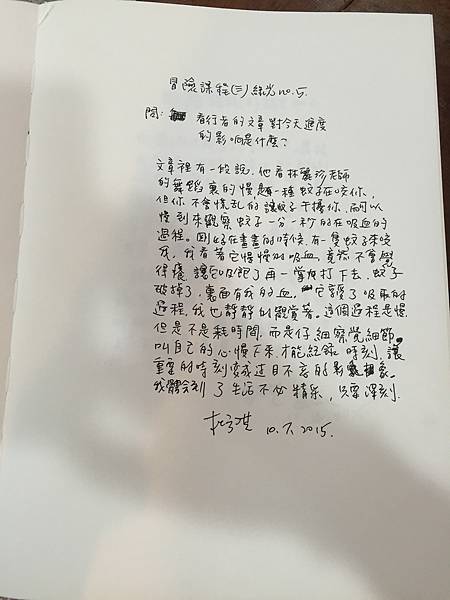 冒險課程(三) 綠光 no.5.
問: 看行者的文章對今天進度
的影响是什麼?
文章裡有一段說, 他看林麗珍老師
的舞蹈裏的慢是一種蚊子在咬你,
但你不會慌乱的讓蚊子干擾你, 而可以
慢到來觀察蚊子一分一秒的在吸血的
過程。剛好在畫畫的時候, 有一隻蚊子來咬
我, 我看著它慢慢的吸血, 竟然不會覺
得癢, 讓它吸飽了再一掌打下去, 蚊子
破掉了, 裏面有我的血, 它享受了吸取的
過程, 我也靜靜的觀賞著。這個過程是慢,
但是不是耗時間, 而是仔細察覺細節。
叫自己的心慢下來, 才能紀錄時刻, 讓
重要的時刻變成过目不忘的影象。
我體會到了生活不必精采, 只要深刻.
10.7.2015.